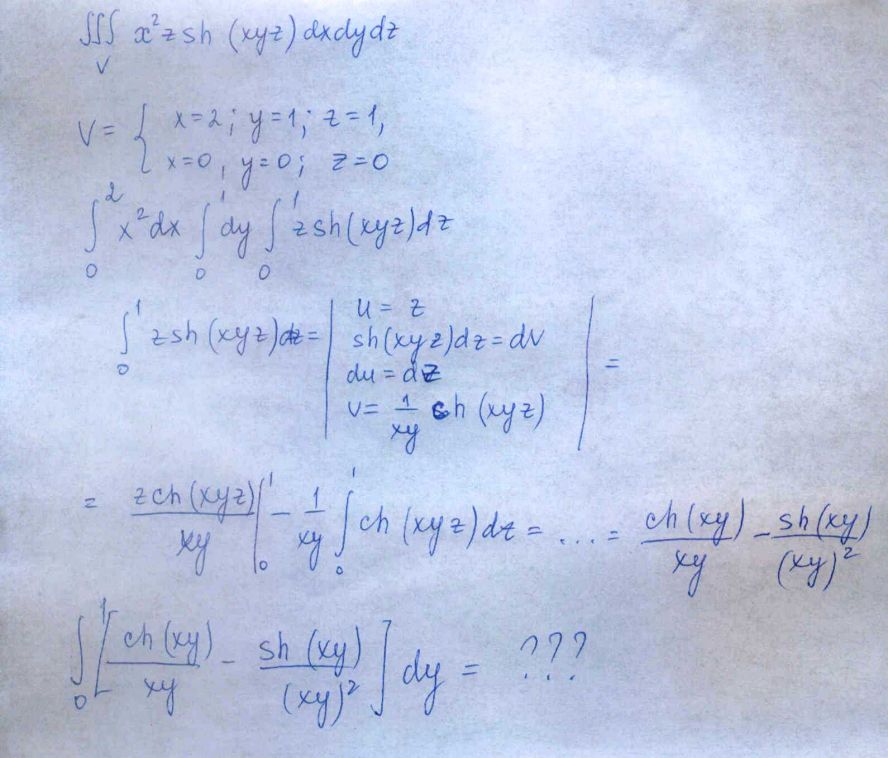 ∭ x²z sh (xyz) dxdydz
V
V = { x=2; y=1; z=1,
x=0, y=0; z=0
∫₀² x²dx ∫₀¹ dy ∫₀¹ z sh(xyz)dz
∫₀¹ z sh (xyz)dz = | u = z
sh(xyz)dz = dv
du = dz
v = 1/xy ch (xyz) | =
= z ch (xyz)/xy |₀¹ - 1/xy ∫₀¹ ch (xyz)dz = ... = ch(xy)/xy - sh(xy)/(xy)²
∫₀¹ [ch (xy)/xy - sh (xy)/(xy)²] dy = ???